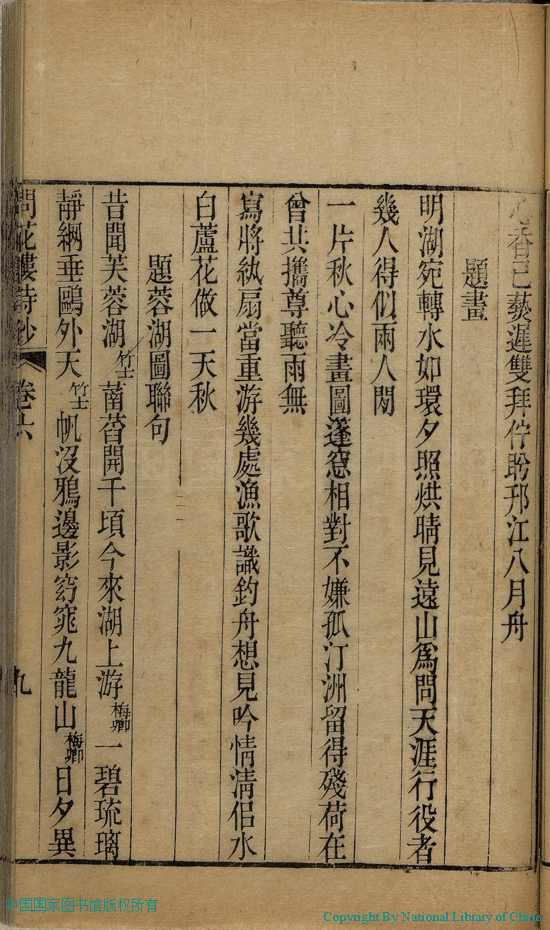 心香已爇遲雙拜佇盼邗江八月舟
題畫
明湖宛轉水如環夕照烘晴見遠山爲問天涯行役者
幾人得似兩人閑
一片秋心冷畫圖蓬窻相對不嫌孤汀洲留得殘荷在
曾共攜尊聽雨無
寫將紈扇當重游幾處漁歌識釣舟想見吟情淸侣水
白蘆花做一天秋
題蓉湖圖聯句
昔聞芙蓉湖竹士菡萏開千頃今來湖上游梅卿一碧琉璃
靜網垂鷗外天竹士帆沒鴉邊影窈窕九龍山梅卿日夕異
問花樓詩鈔 卷六 九
中国国家图书馆版权所有
Copyright By National Library of China